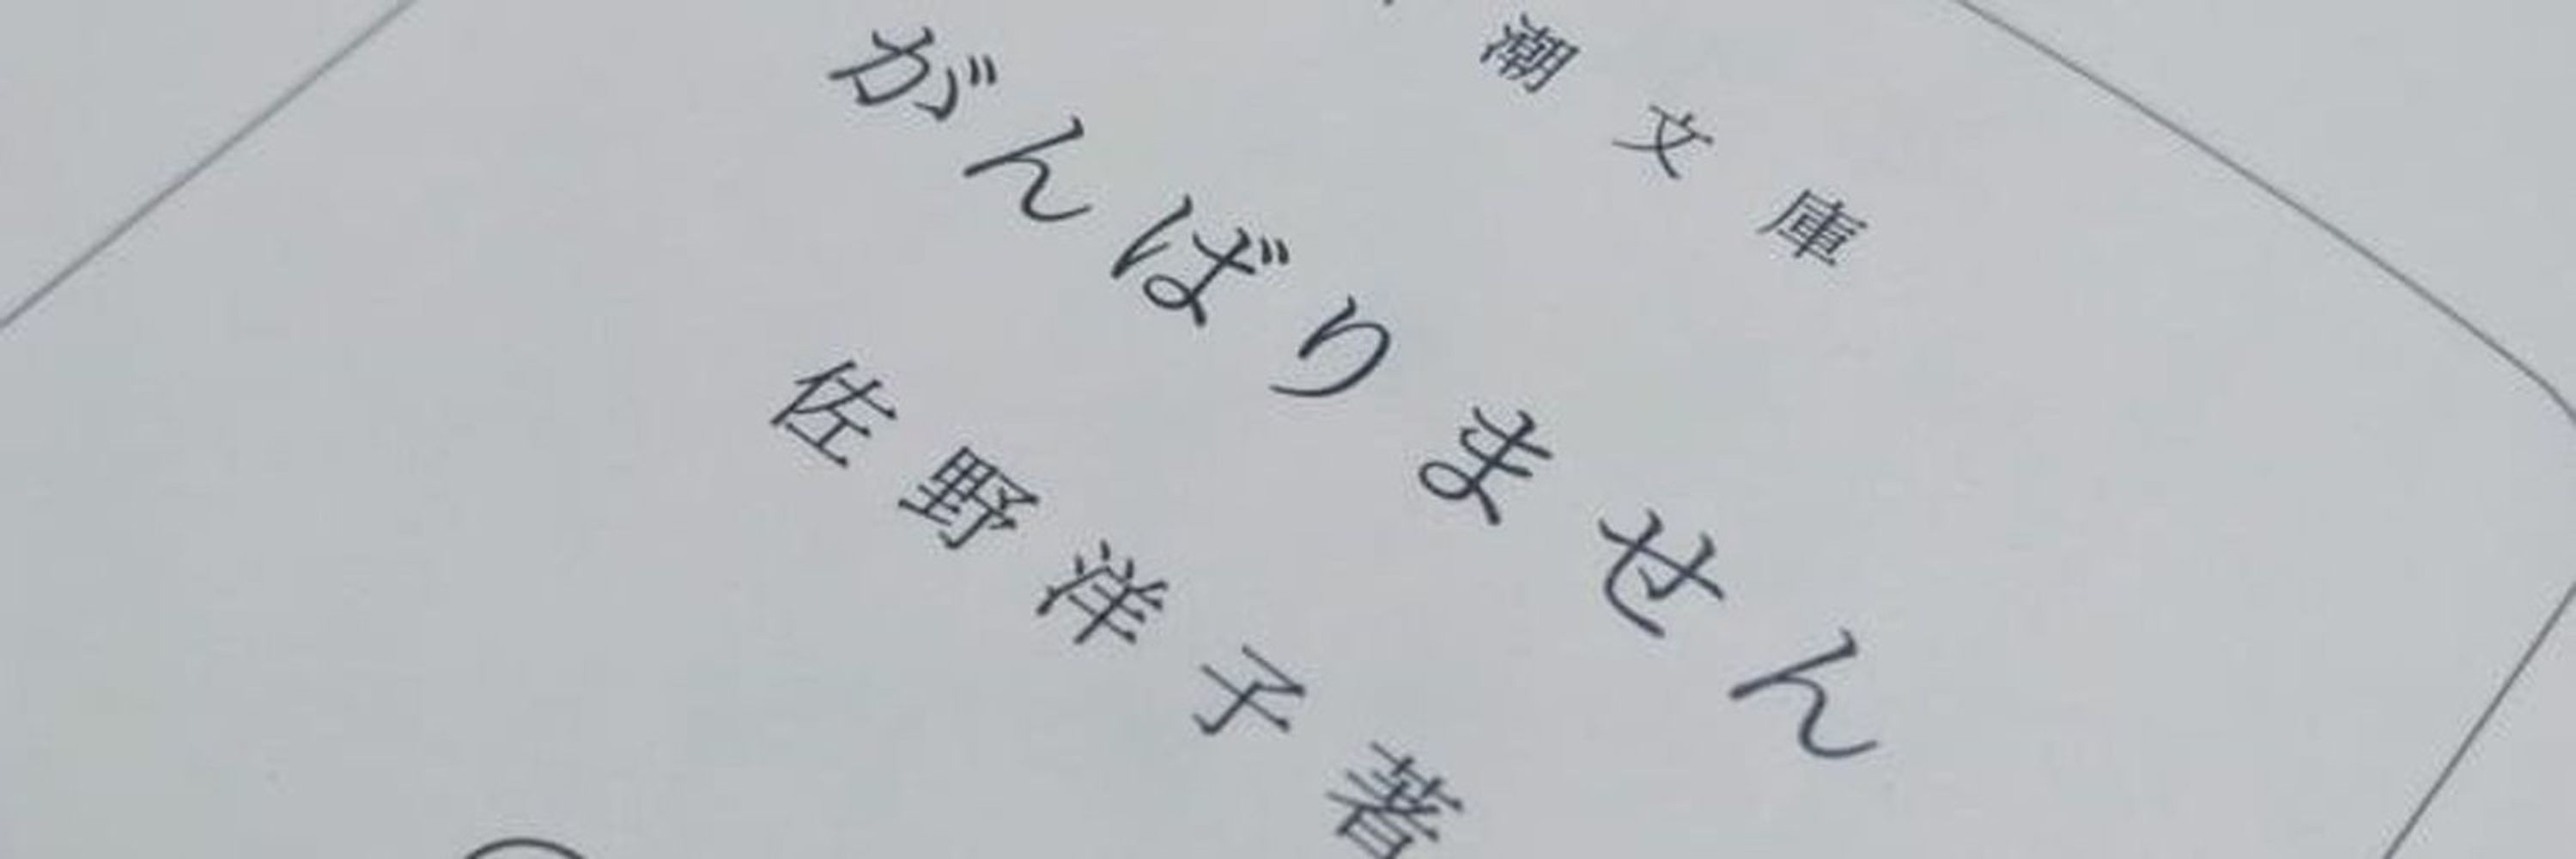 潮文庫
がんばりません
佐野洋子著